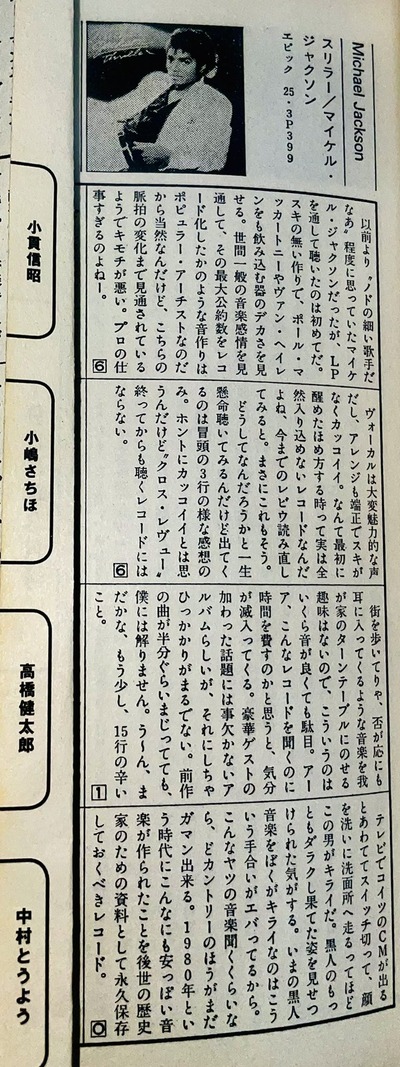 Michael Jackson
スリラー／マイケル・
ジャクソン
エピック 25・3P399
小貫信昭
以前より〝ノドの細い歌手だ
なあ〟程度に思っていたマイケ
ル・ジャクソンだったが、LP
を通して聴いたのは初めてだ。
スキの無い作りで、ポール・マ
ッカートニーやヴァン・ヘイレ
ンをも飲み込む器のデカさを見
せる。世間一般の音楽感情を見
通して、その最大公約数をレコ
ード化したかのような音作りは
ポピュラー・アーチストなのだ
から当然なんだけど、こちらの
脈拍の変化まで見通されている
ようでキモチが悪い。プロの仕
事すぎるのよねー。 6
小嶋さちほ
ヴォーカルは大変魅力的な声
だし、アレンジも端正でスキが
なくカッコイイ。なんて最初に
醒めたほめ方する時って実は全
然入り込めないレコードなんだ
よね、今までのレビウ読み直し
てみると。まさにこれもそう。
どうしてなんだろうかと一生
懸命聴いてみるんだけど出てく
るのは冒頭の3行の様な感想の
み。ホントにカッコイイとは思
うんだけど〝クロス・レヴュー〟
終ってからも聴くレコードには
ならない。 6
高橋健太郎
街を歩いてりゃ、否が応にも
耳に入ってくるような音楽を我
が家のターンテーブルにのせる
趣味はないので、こういうのは
いくら音が良くても駄目。アー
ア、こんなレコードを聞くのに
時間を費すのかと思うと、気分
が滅入ってくる。豪華ゲストの
加わった話題には事欠かないア
ルバムらしいが、それにしちゃ
ひっかかりがまるでない。前作
の曲が半分ぐらいまじってても、
僕には解りません。う〜ん、ま
だかな、もう少し、15行の辛い
こと。 1
中村とうよう
テレビでコイツのCMが出る
とあわててスイッチ切って、顔
を洗いに洗面所へ走るってほど
この男がキライだ。黒人のもっ
ともダラクし果てた姿を見せつ
けられた気がする。いまの黒人
音楽をぼくがキライなのはこう
いう手合いがエバってるから。
こんなヤツの音楽聞くくらいな
ら、どカントリーのほうがまだ
ガマン出来る。1980年とい
う時代にこんなにも安っぽい音
楽が作られたことを後世の歴史
家のための資料として永久保存
しておくべきレコード。 0